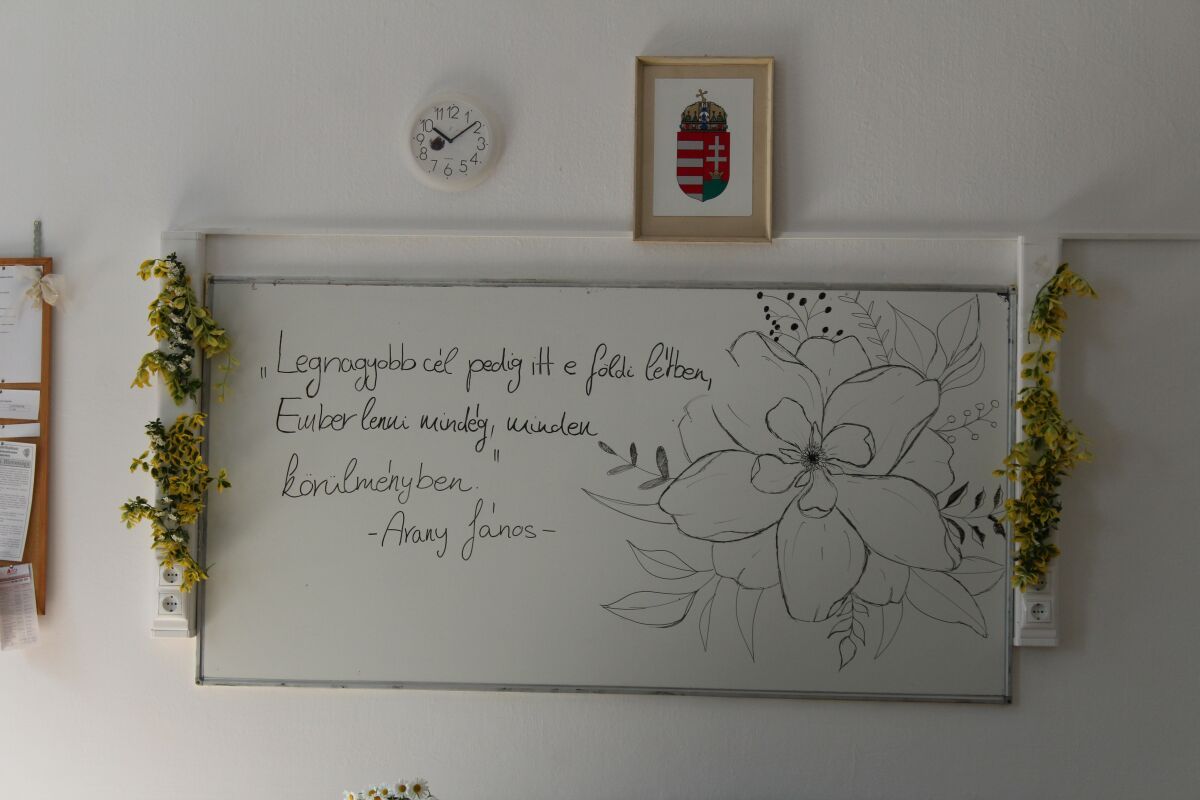 11 12 1
10 2
9 3
8 4
7 6 5
„Legnagyobb cél pedig itt e földi létben,
Ember lenni mindég, minden
körülményben."
-Arany János-